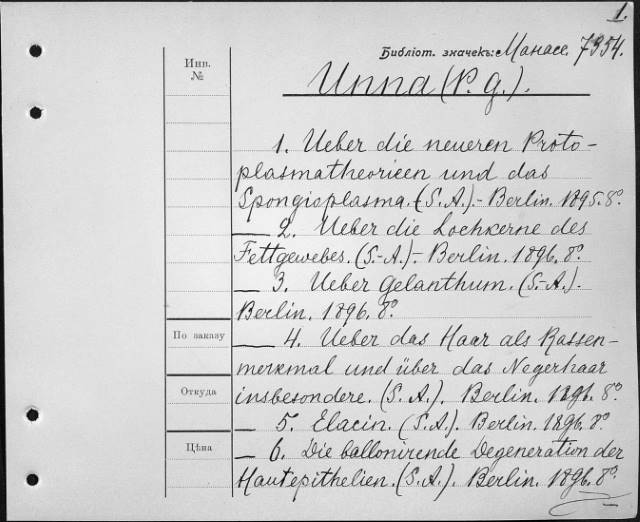 1.
Библіот. значекъ: Манасе. 7354.
Инв.
№
Unna (P. G.).
1. Ueber die neueren Proto-
plasmatheorieen und das
Spongioplasma. (S. A.). - Berlin. 1895. 8º
— 2. Ueber die Lochkerne des
Fettgewebes. (S.-A.). - Berlin. 1896. 8º.
— 3. Ueber Gelanthum. (S.-A.).
Berlin. 1896. 8º.
По заказу
— 4. Ueber das Haar als Rassen-
merkmal und über das Negerhaar
Откуда
insbesondere. (S. A.). Berlin. 1896. 8º.
— 5. Elacin. (S. A.). Berlin. 1896. 8º
Цѣна
— 6. Die ballonirende Degeneration der
Hautepithelien. (S. A.). Berlin. 1896. 8º.